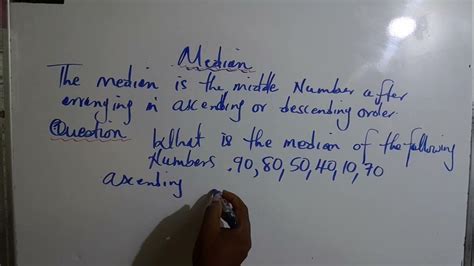 Median
The median is the middle Number after
arranging in ascending or descending order.
Question What is the median of the following
Numbers . 90, 80, 50, 40, 10, 70
ascending